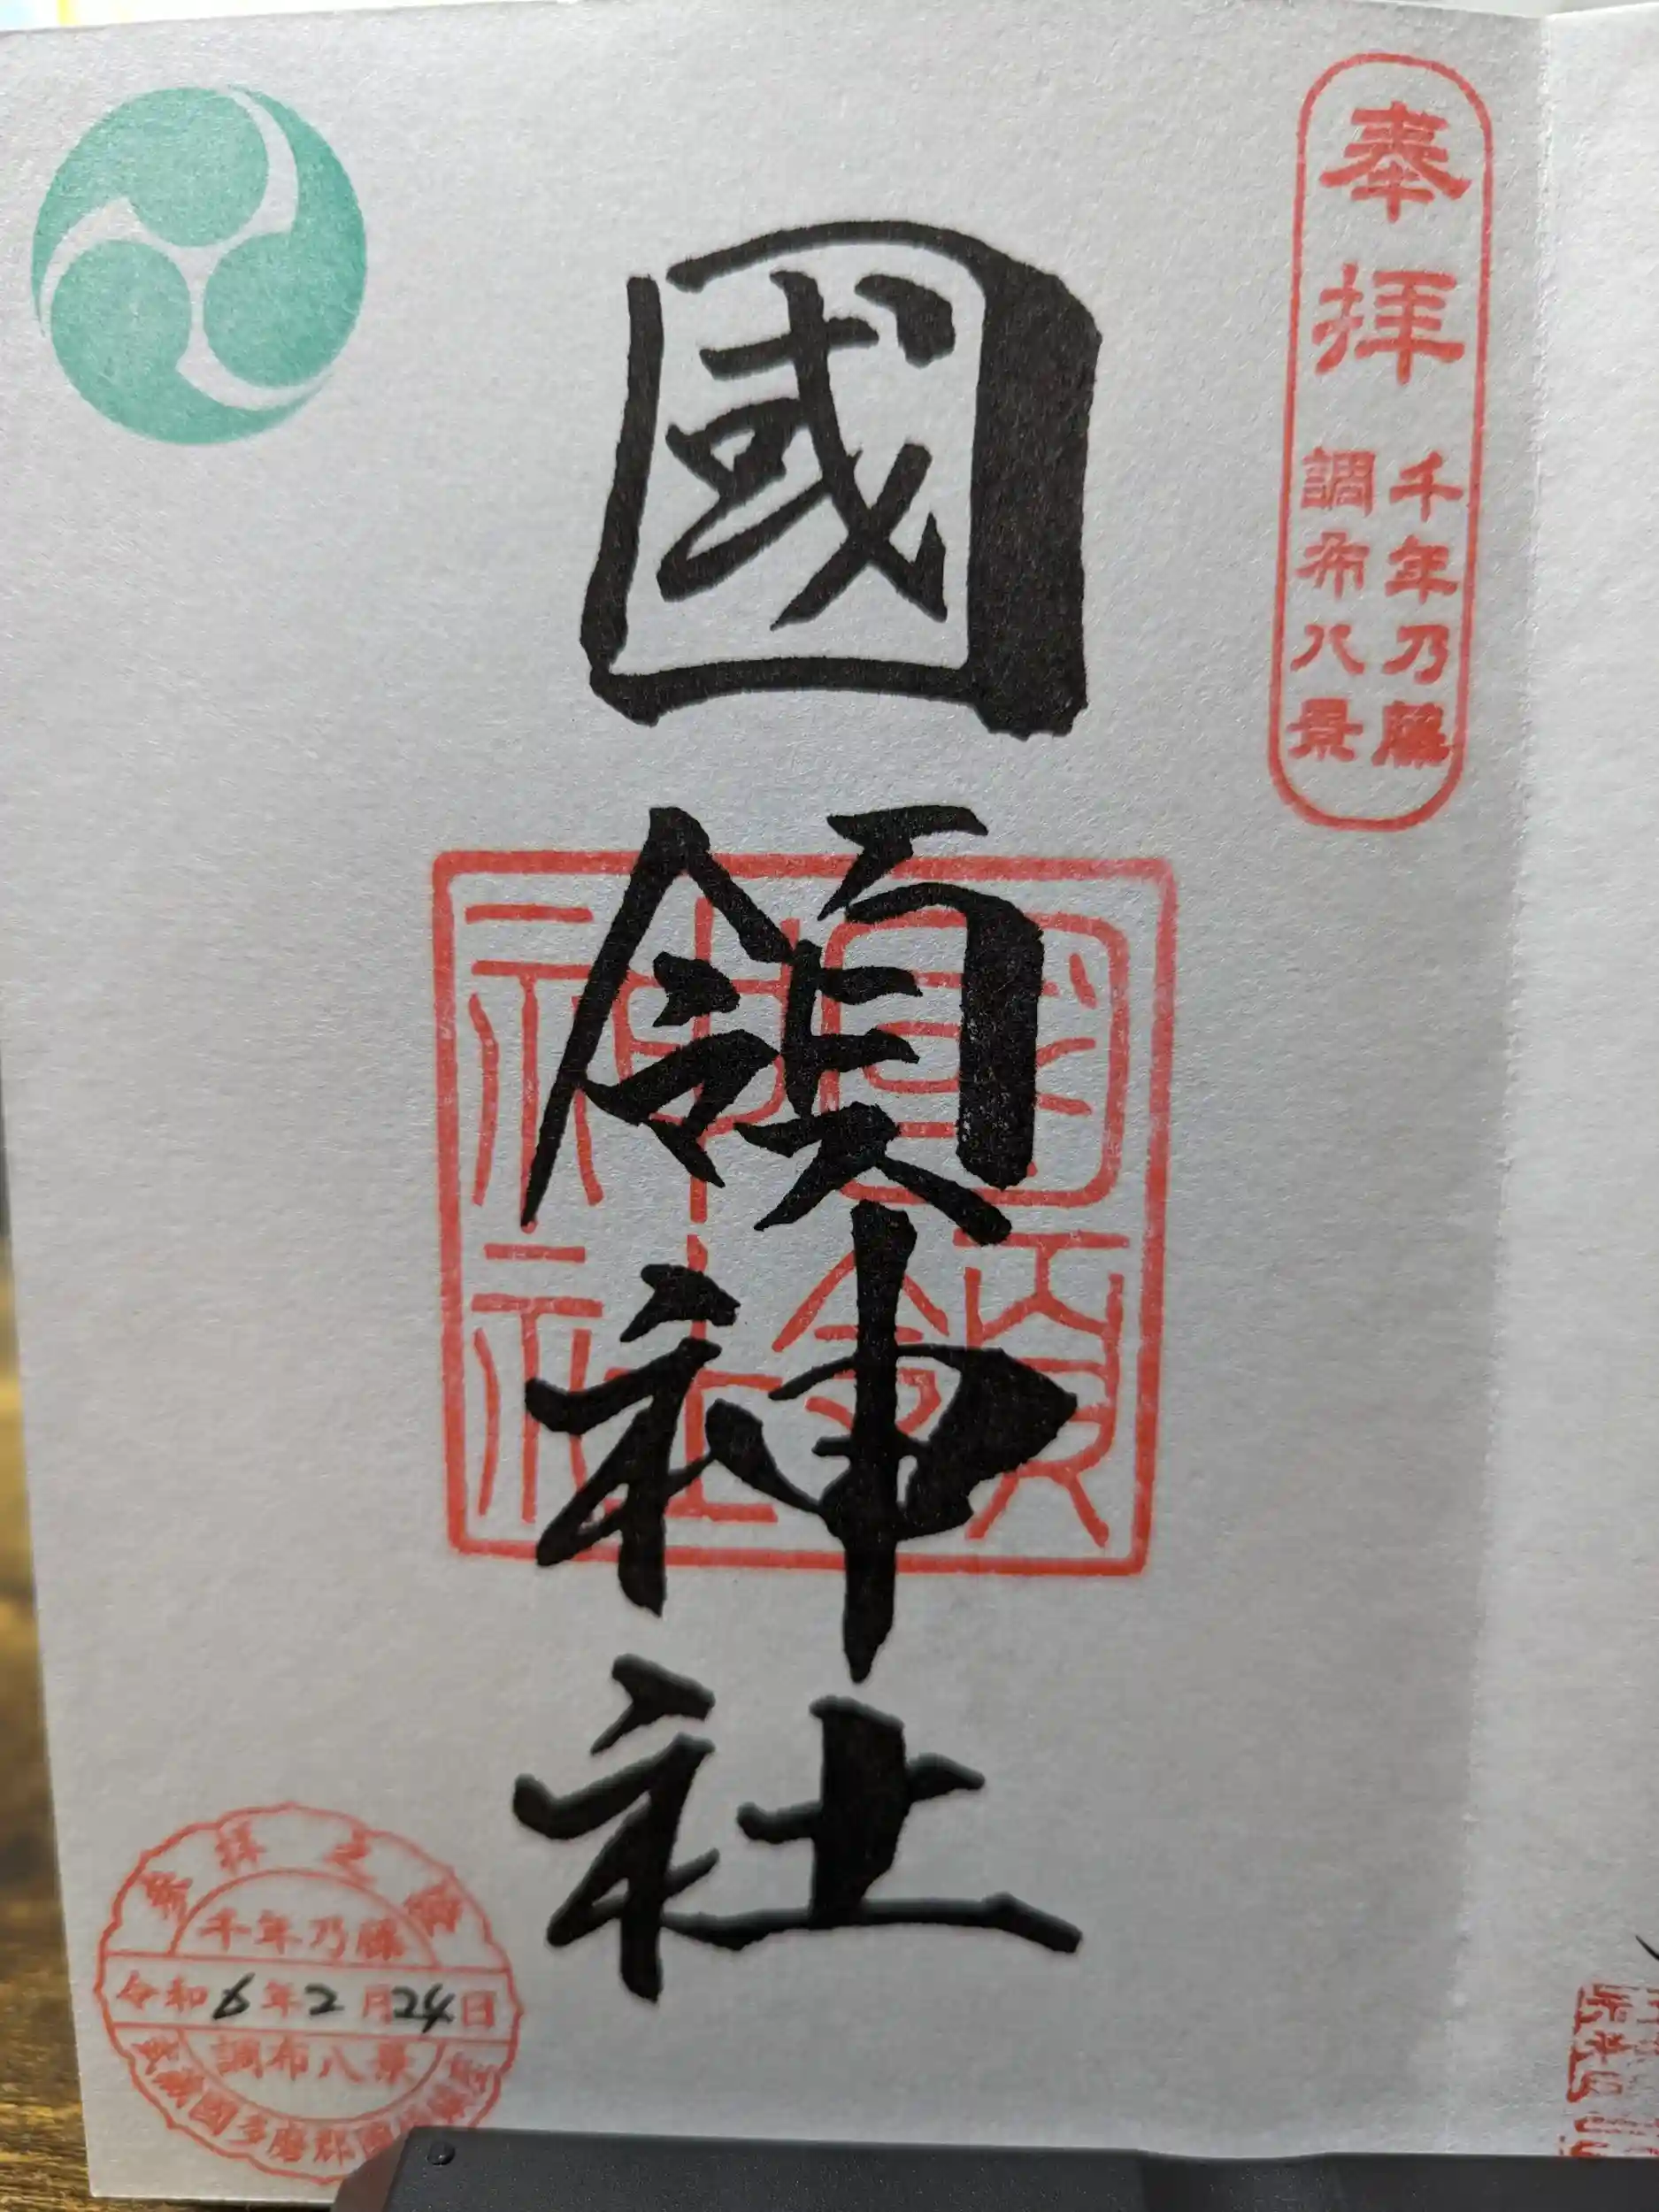 奉拝
千年乃藤
調布八景
國領神社
國領
神社
参拝之證
千年乃藤
令和6年2月24日
調布八景
國多磨郡